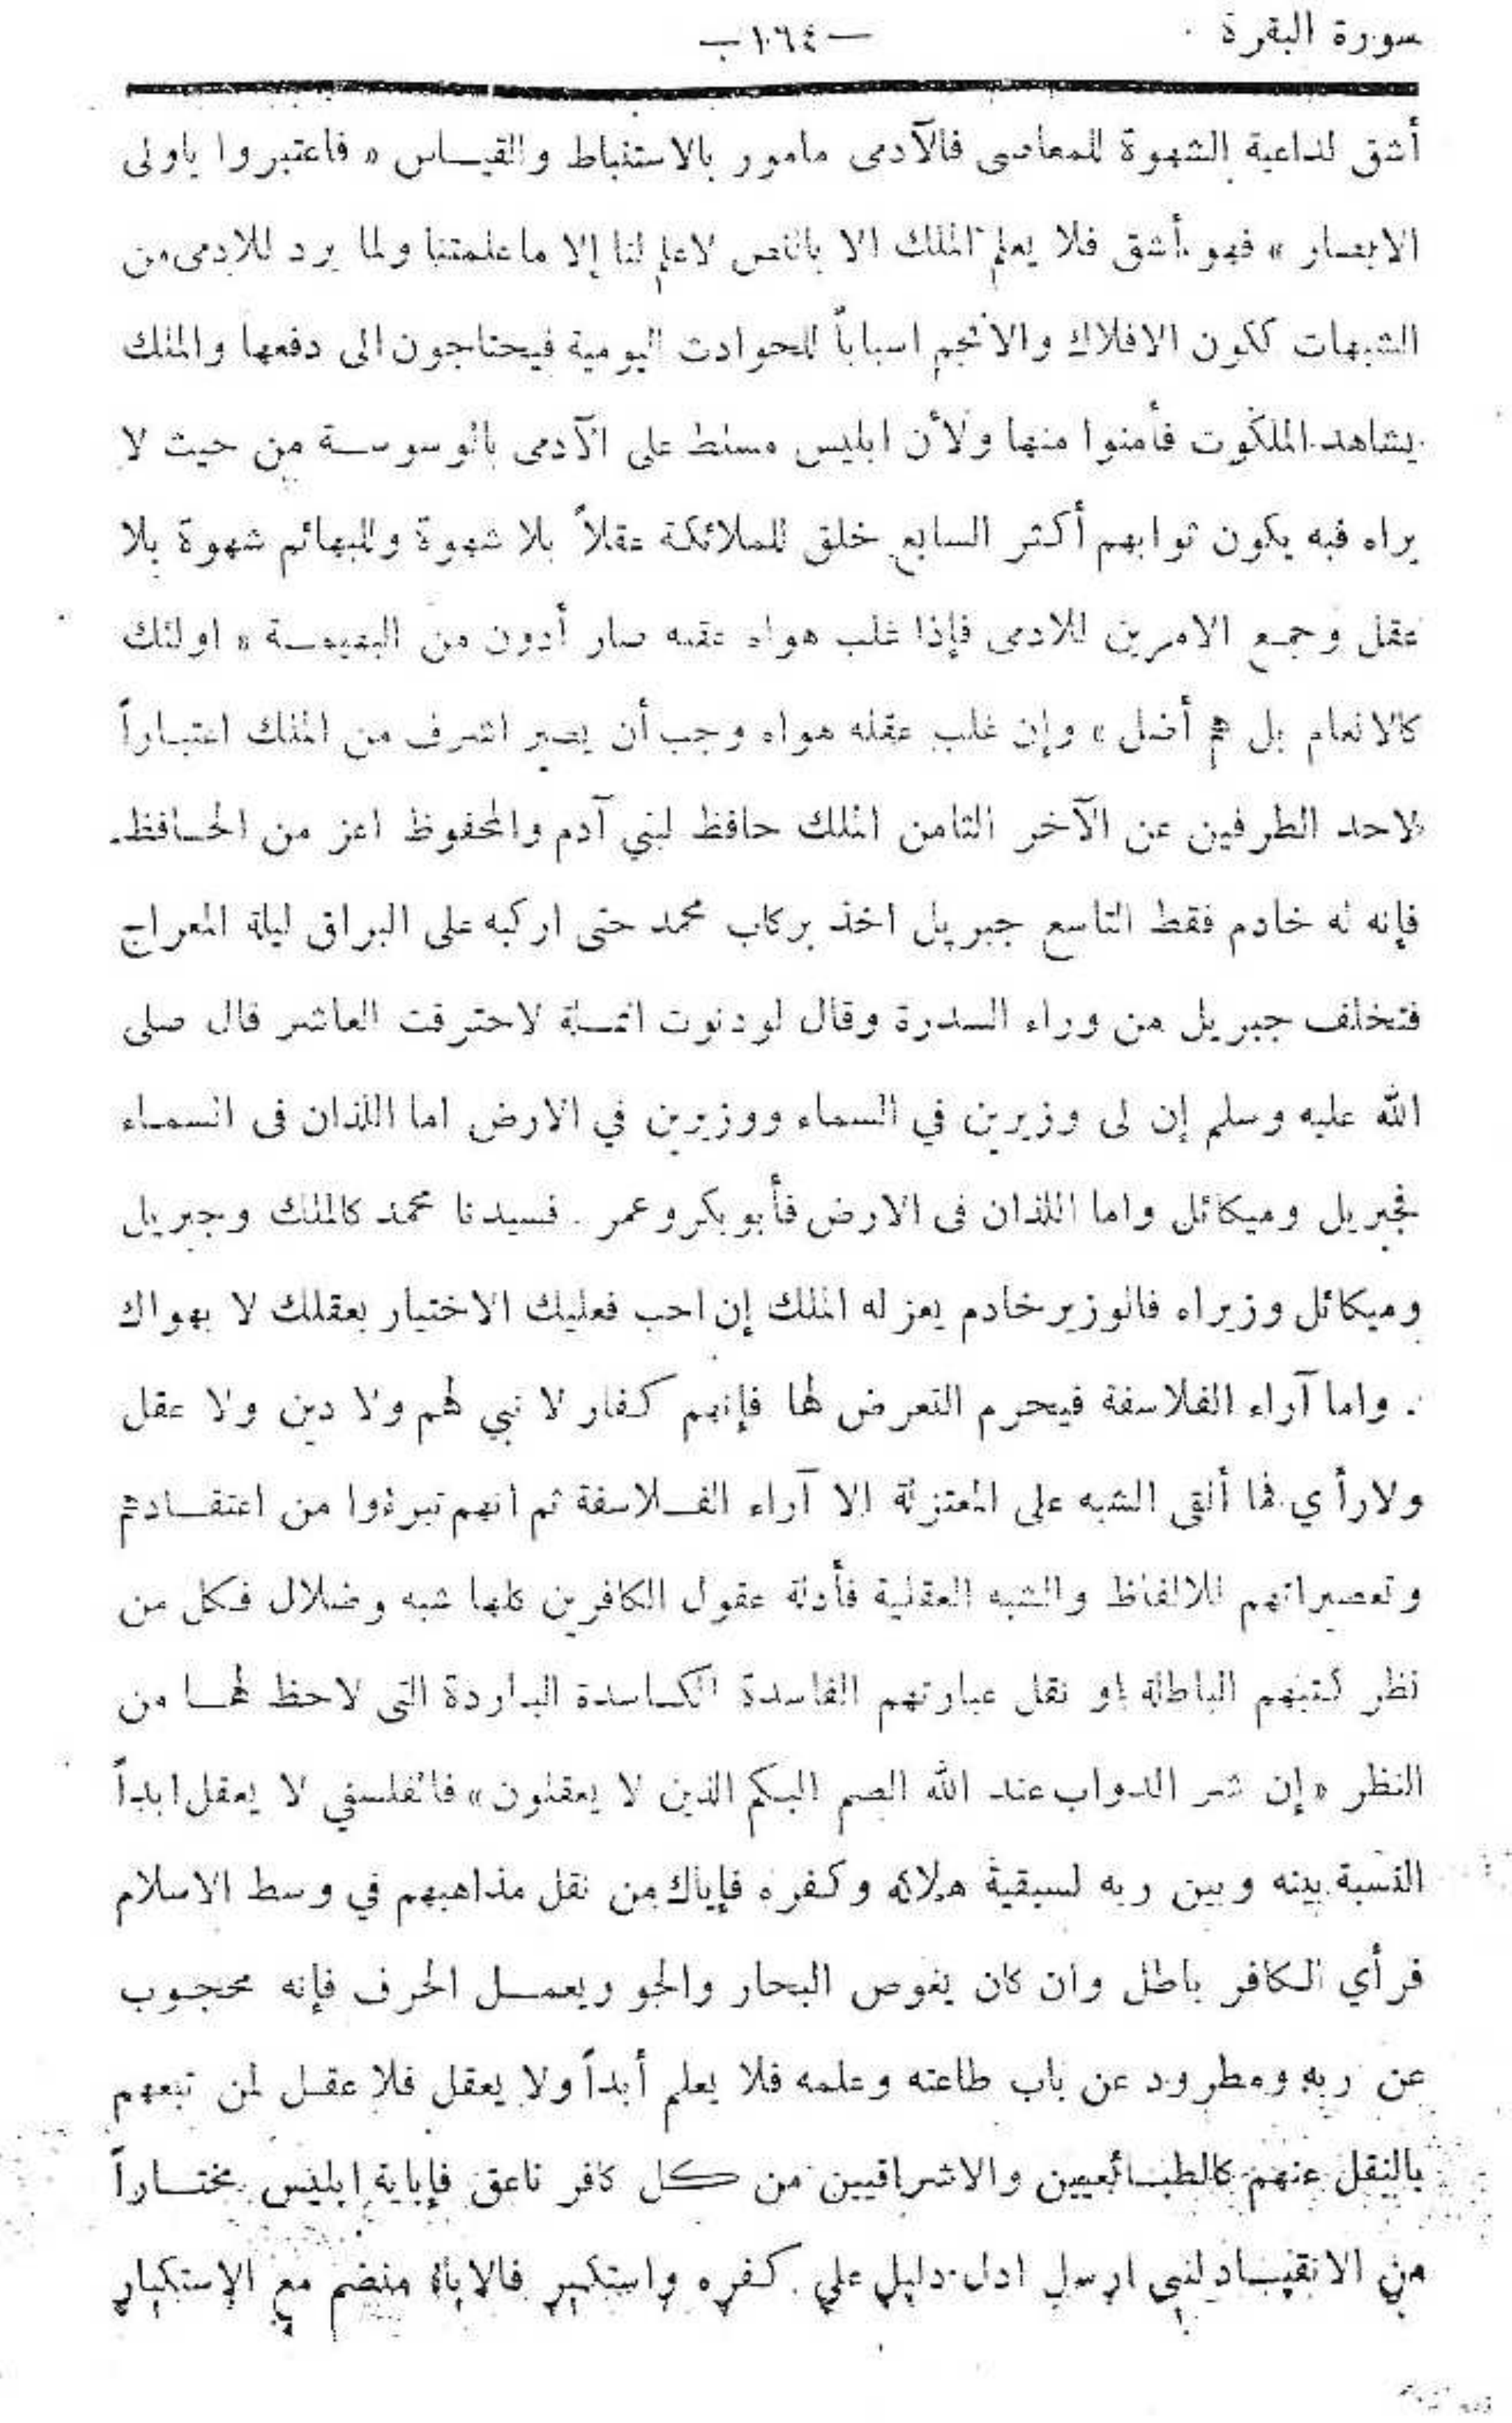 سورة البقرة
— ١٠٦٤ —
أشق لداعية الشهوة للمعاصى فالآدمى مامور بالاستنباط والقياس « فاعتبروا ياولى
الابصار » فهو أشق فلا يعلم الملك الا بالنص لاعلم لنا إلا ماعلمتنا ولما يرد للادمى من
الشبهات ككون الافلاك والانجم اسباباً للحوادث اليومية فيحتاجون الى دفعها والملك
يشاهد الملكوت فأمنوا منها ولأن ابليس مسلط على الآدمى بالوسوسة من حيث لا
يراه فبه يكون ثوابهم أكثر السابع خلق للملائكة عقلاً بلا شهوة وللبهائم شهوة بلا
عقل وجمع الامرين للادمى فإذا غلب هواه عقله صار أدون من البهيمة « اولئك
كالانعام بل هم أضل » وإن غلب عقله هواه وجب أن يصير اشرف من الملك اعتباراً
لاحد الطرفين عن الآخر الثامن الملك حافظ لبني آدم والمحفوظ اعز من الحافظ
فإنه له خادم فقط التاسع جبريل اخذ بركاب محمد حتى اركبه على البراق ليلة المعراج
فتخلف جبريل من وراء السدرة وقال لو دنوت انملة لاحترقت العاشر قال صلى
الله عليه وسلم إن لى وزيرين في السماء ووزيرين في الارض اما اللذان فى السماء
فجبريل وميكائل واما اللذان فى الارض فأبو بكر وعمر . فسيدنا محمد كالملك وجبريل
وميكائل وزيراه فالوزير خادم يعزله الملك إن احب فعليك الاختيار بعقلك لا بهواك
. واما آراء الفلاسفة فيحرم التعرض لها فإنهم كفار لا نبي لهم ولا دين ولا عقل
ولا رأي فما ألقى الشبه على المعتزلة إلا آراء الفلاسفة ثم انهم تبرءوا من اعتقادهم
وتعصيراتهم للالفاظ والشبه العقلية فأدلة عقول الكافرين كلها شبه وضلال فكل من
نظر كتبهم الباطلة او نقل عبارتهم الفاسدة الكاسدة الباردة التى لاحظ لها من
النظر « إن شر الدواب عند الله الصم البكم الذين لا يعقلون » فالفلسفي لا يعقل ابداً
النسبة بينه وبين ربه لسبقية هلاكه وكفره فإياك من نقل مذاهبهم في وسط الاسلام
فرأي الكافر باطل وان كان يغوص البحار والجو ويعمل الحرف فإنه محجوب
عن ربه ومطرود عن باب طاعته وعلمه فلا يعلم أبداً ولا يعقل فلا عقل لمن تبعهم
بالنقل عنهم كالطبائعيين والاشراقيين من كل كافر ناعق فإباية ابليس مختاراً
من الانقياد لنبى ارسل ادل دليل على كفره واستكبر فالاباة منضم مع الإستكبار